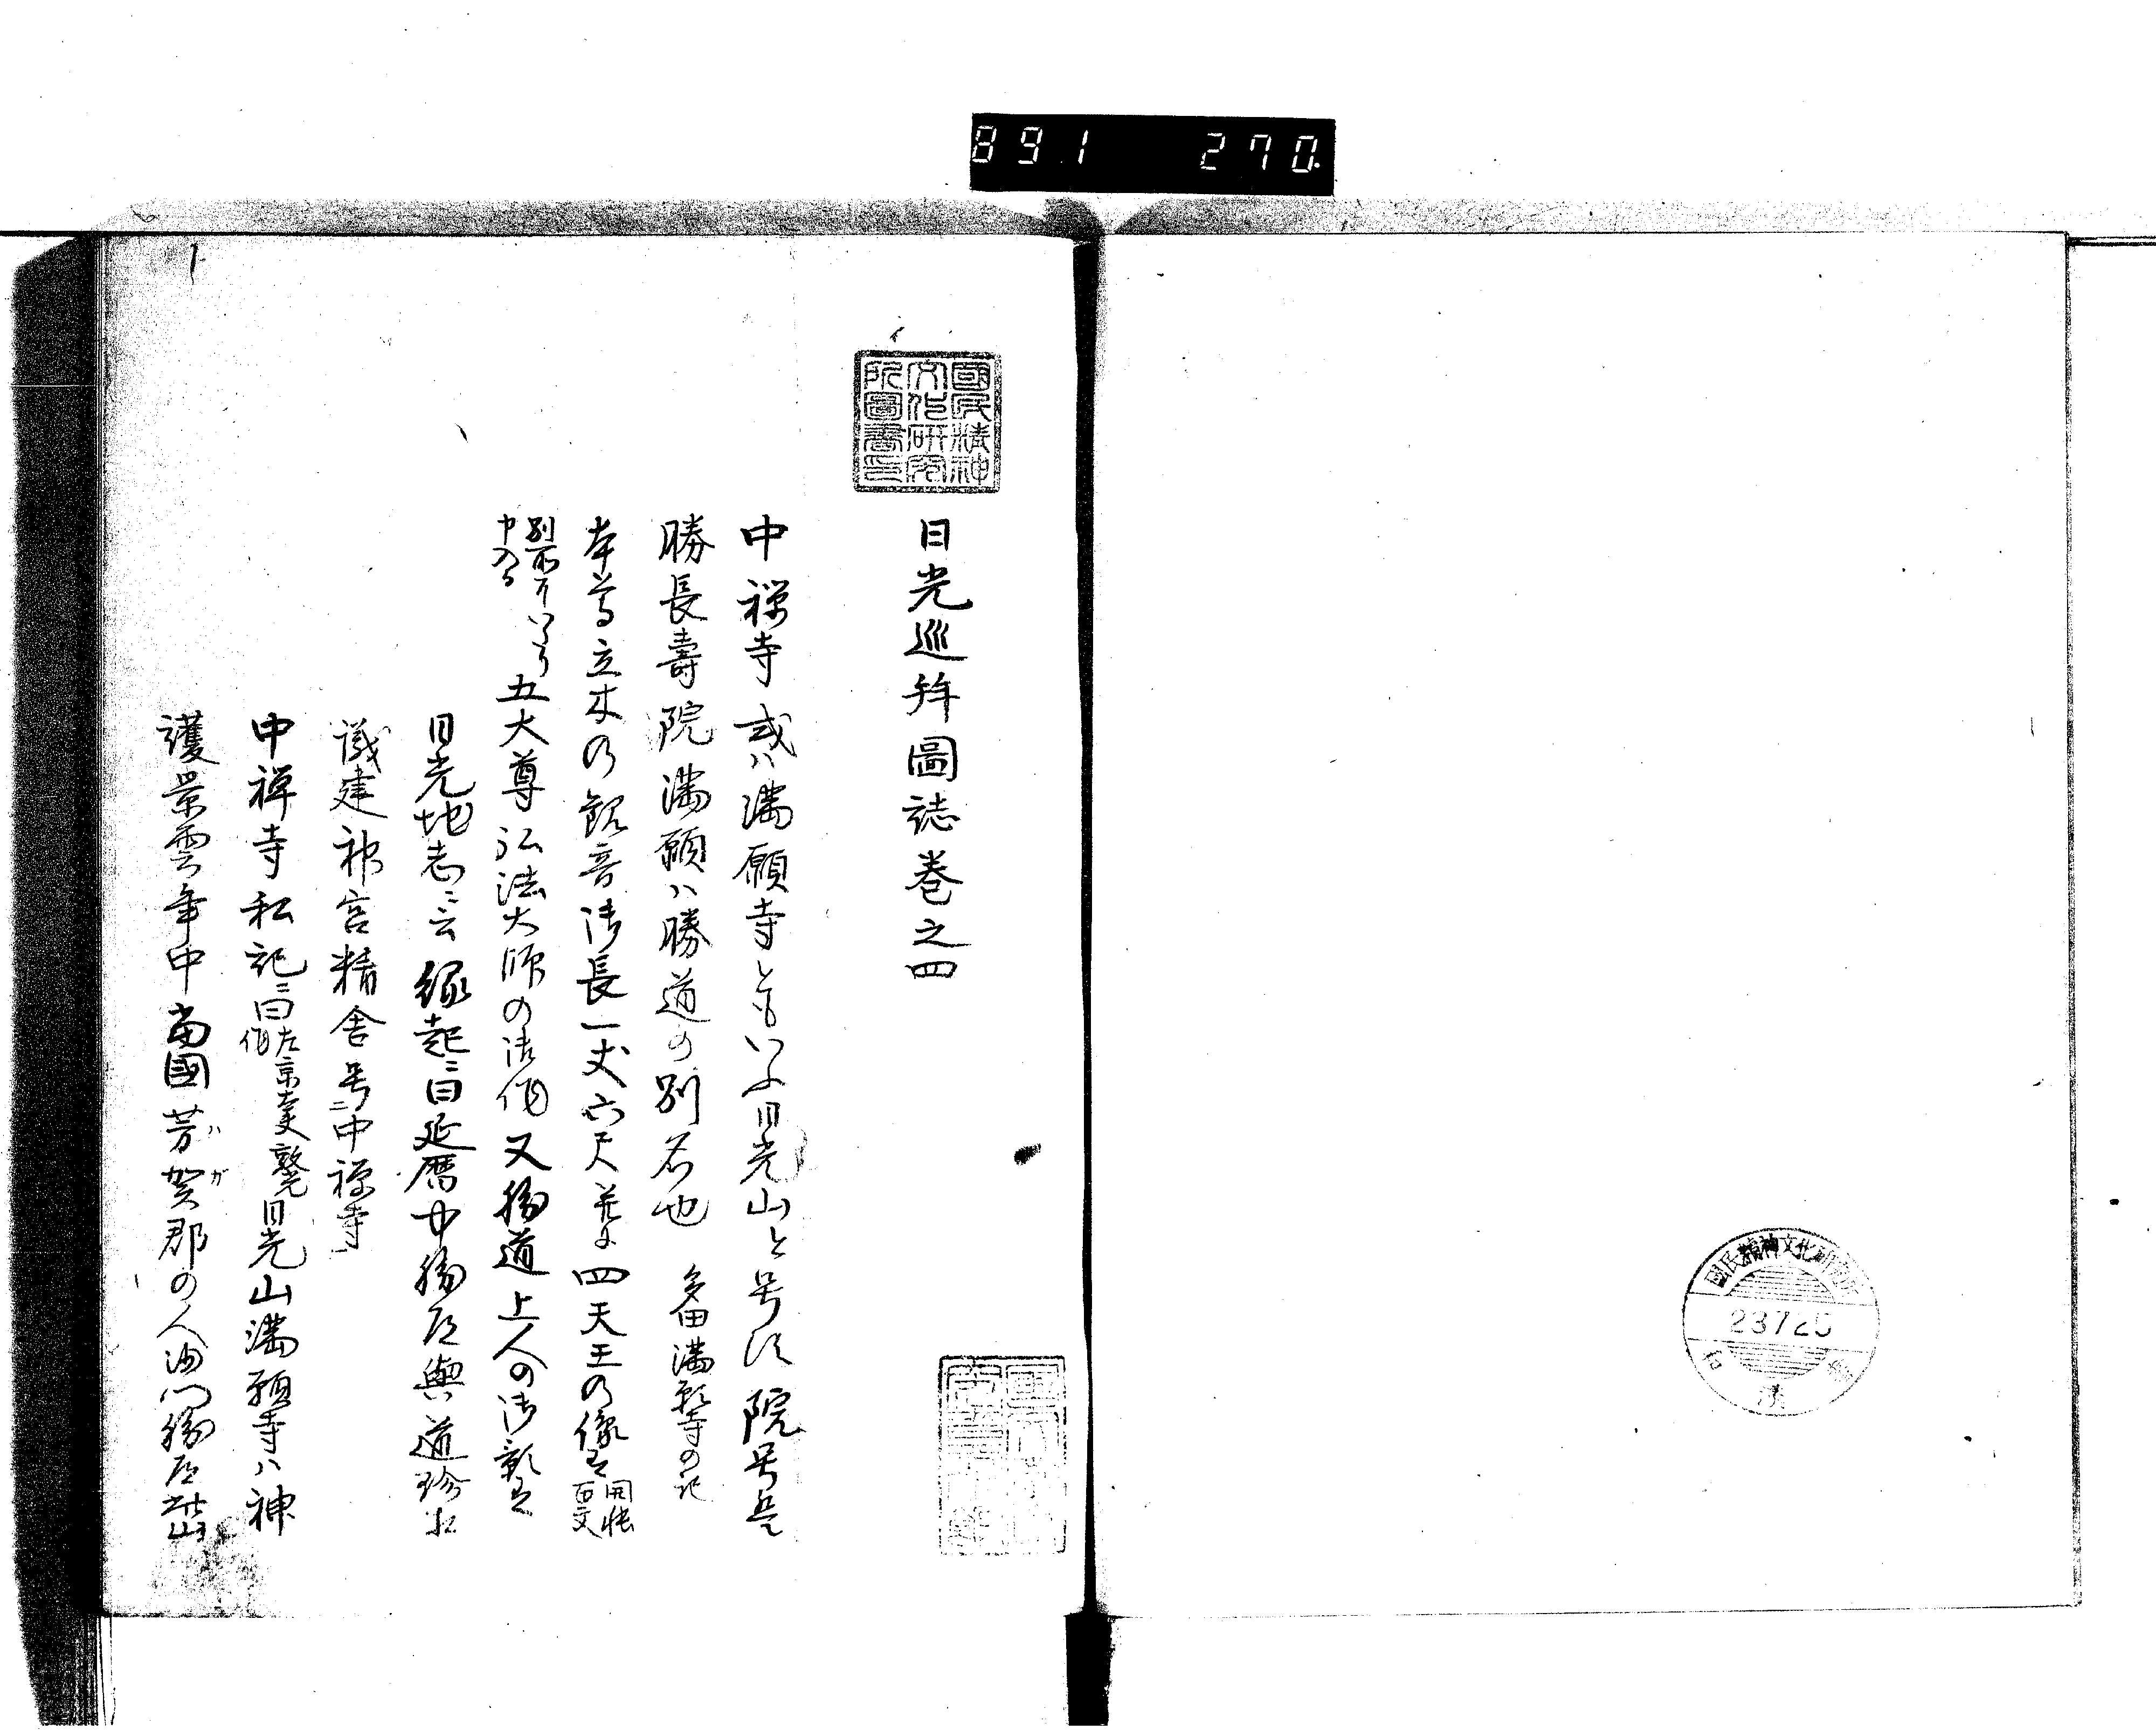 891 270
國民精神
文化研究
所圖書印
日光巡拜圖誌巻之四
中禅寺或ハ満願寺ともいふ日光山と号す院号を
勝長壽院満願ハ勝道の別名也 満願寺の記
本尊立木の観音御長一丈六尺並に四天王の像を 開帳 百文
別所 五大尊弘法大師の御作又勝道上人の御影を
日光地志ニ云縁起ニ曰延暦中勝道與道珍
議建神宮精舎号中禅寺
中禅寺私記ニ曰 左京大夫敦光 作 日光山満願寺ハ神
護景雲年中當國芳賀郡の人沙門勝道
ハガ
國民精神文化研究所
23720